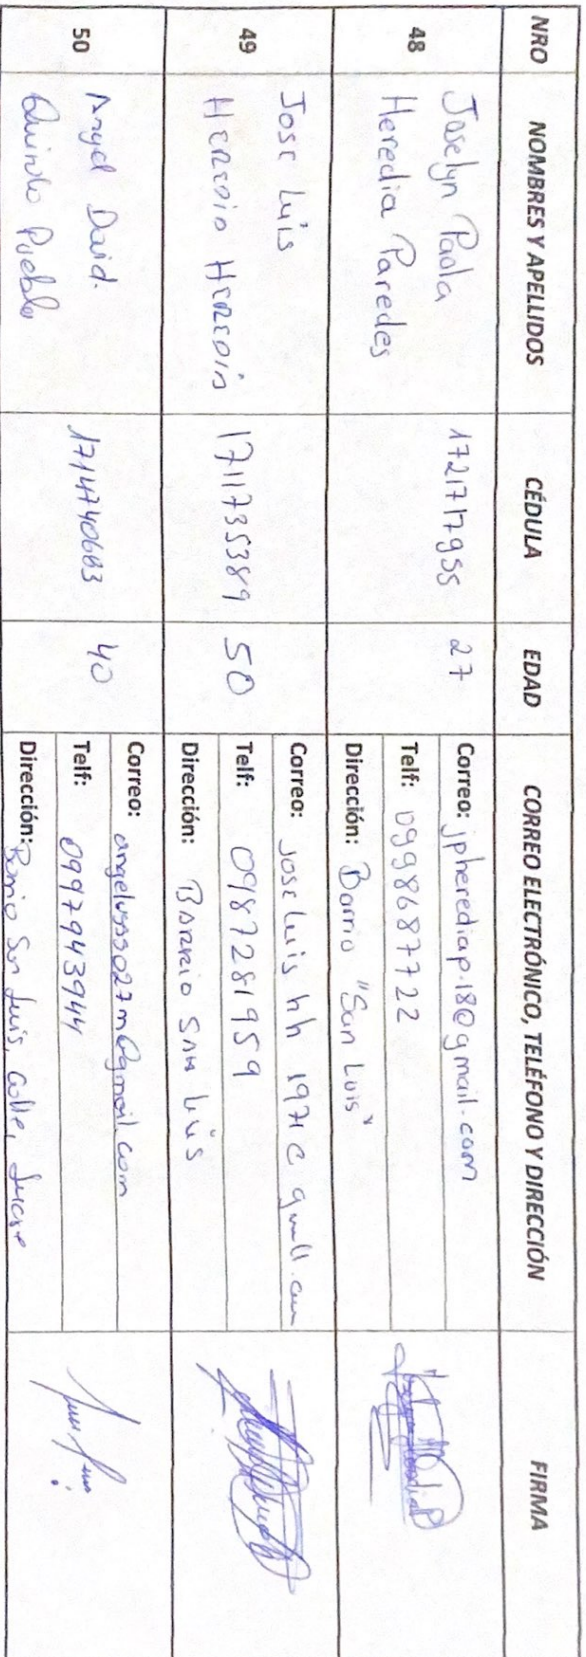 NRO NOMBRES Y APELLIDOS CÉDULA EDAD CORREO ELECTRÓNICO, TELÉFONO Y DIRECCIÓN FIRMA
48 Joselyn Paola Heredia Paredes 1721717955 27
Correo: jpherediap.18@gmail.com
Telf: 0998687722
Dirección: Barrio "San Luis"
49 Jose Luis Heredia Heredia 1711735389 50
Correo: joseluis hh 1971 @ gmail.com
Telf: 0987281959
Dirección: Barrio San Luis
50 Angel David. Puebla 40
Correo:
Telf: 0997943944
Dirección: Barrio San Luis, calle,